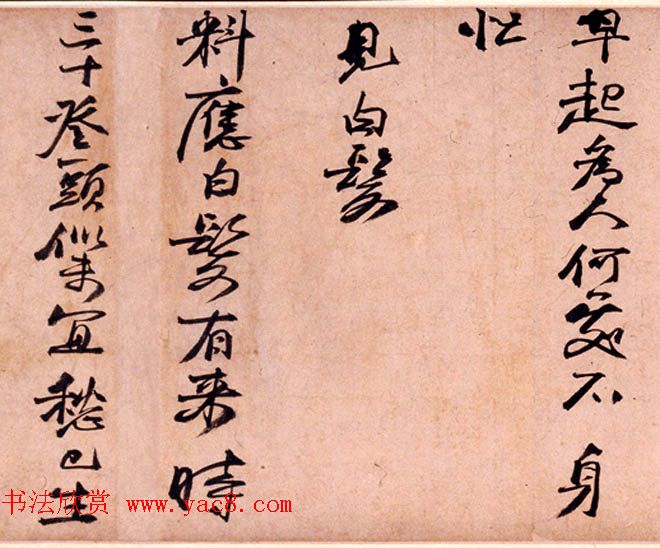 早起為人何處不身
忙
見白髮
料應白髮有来時
三十登頭似未宜愁已生
书法欣赏 www.yac8.com